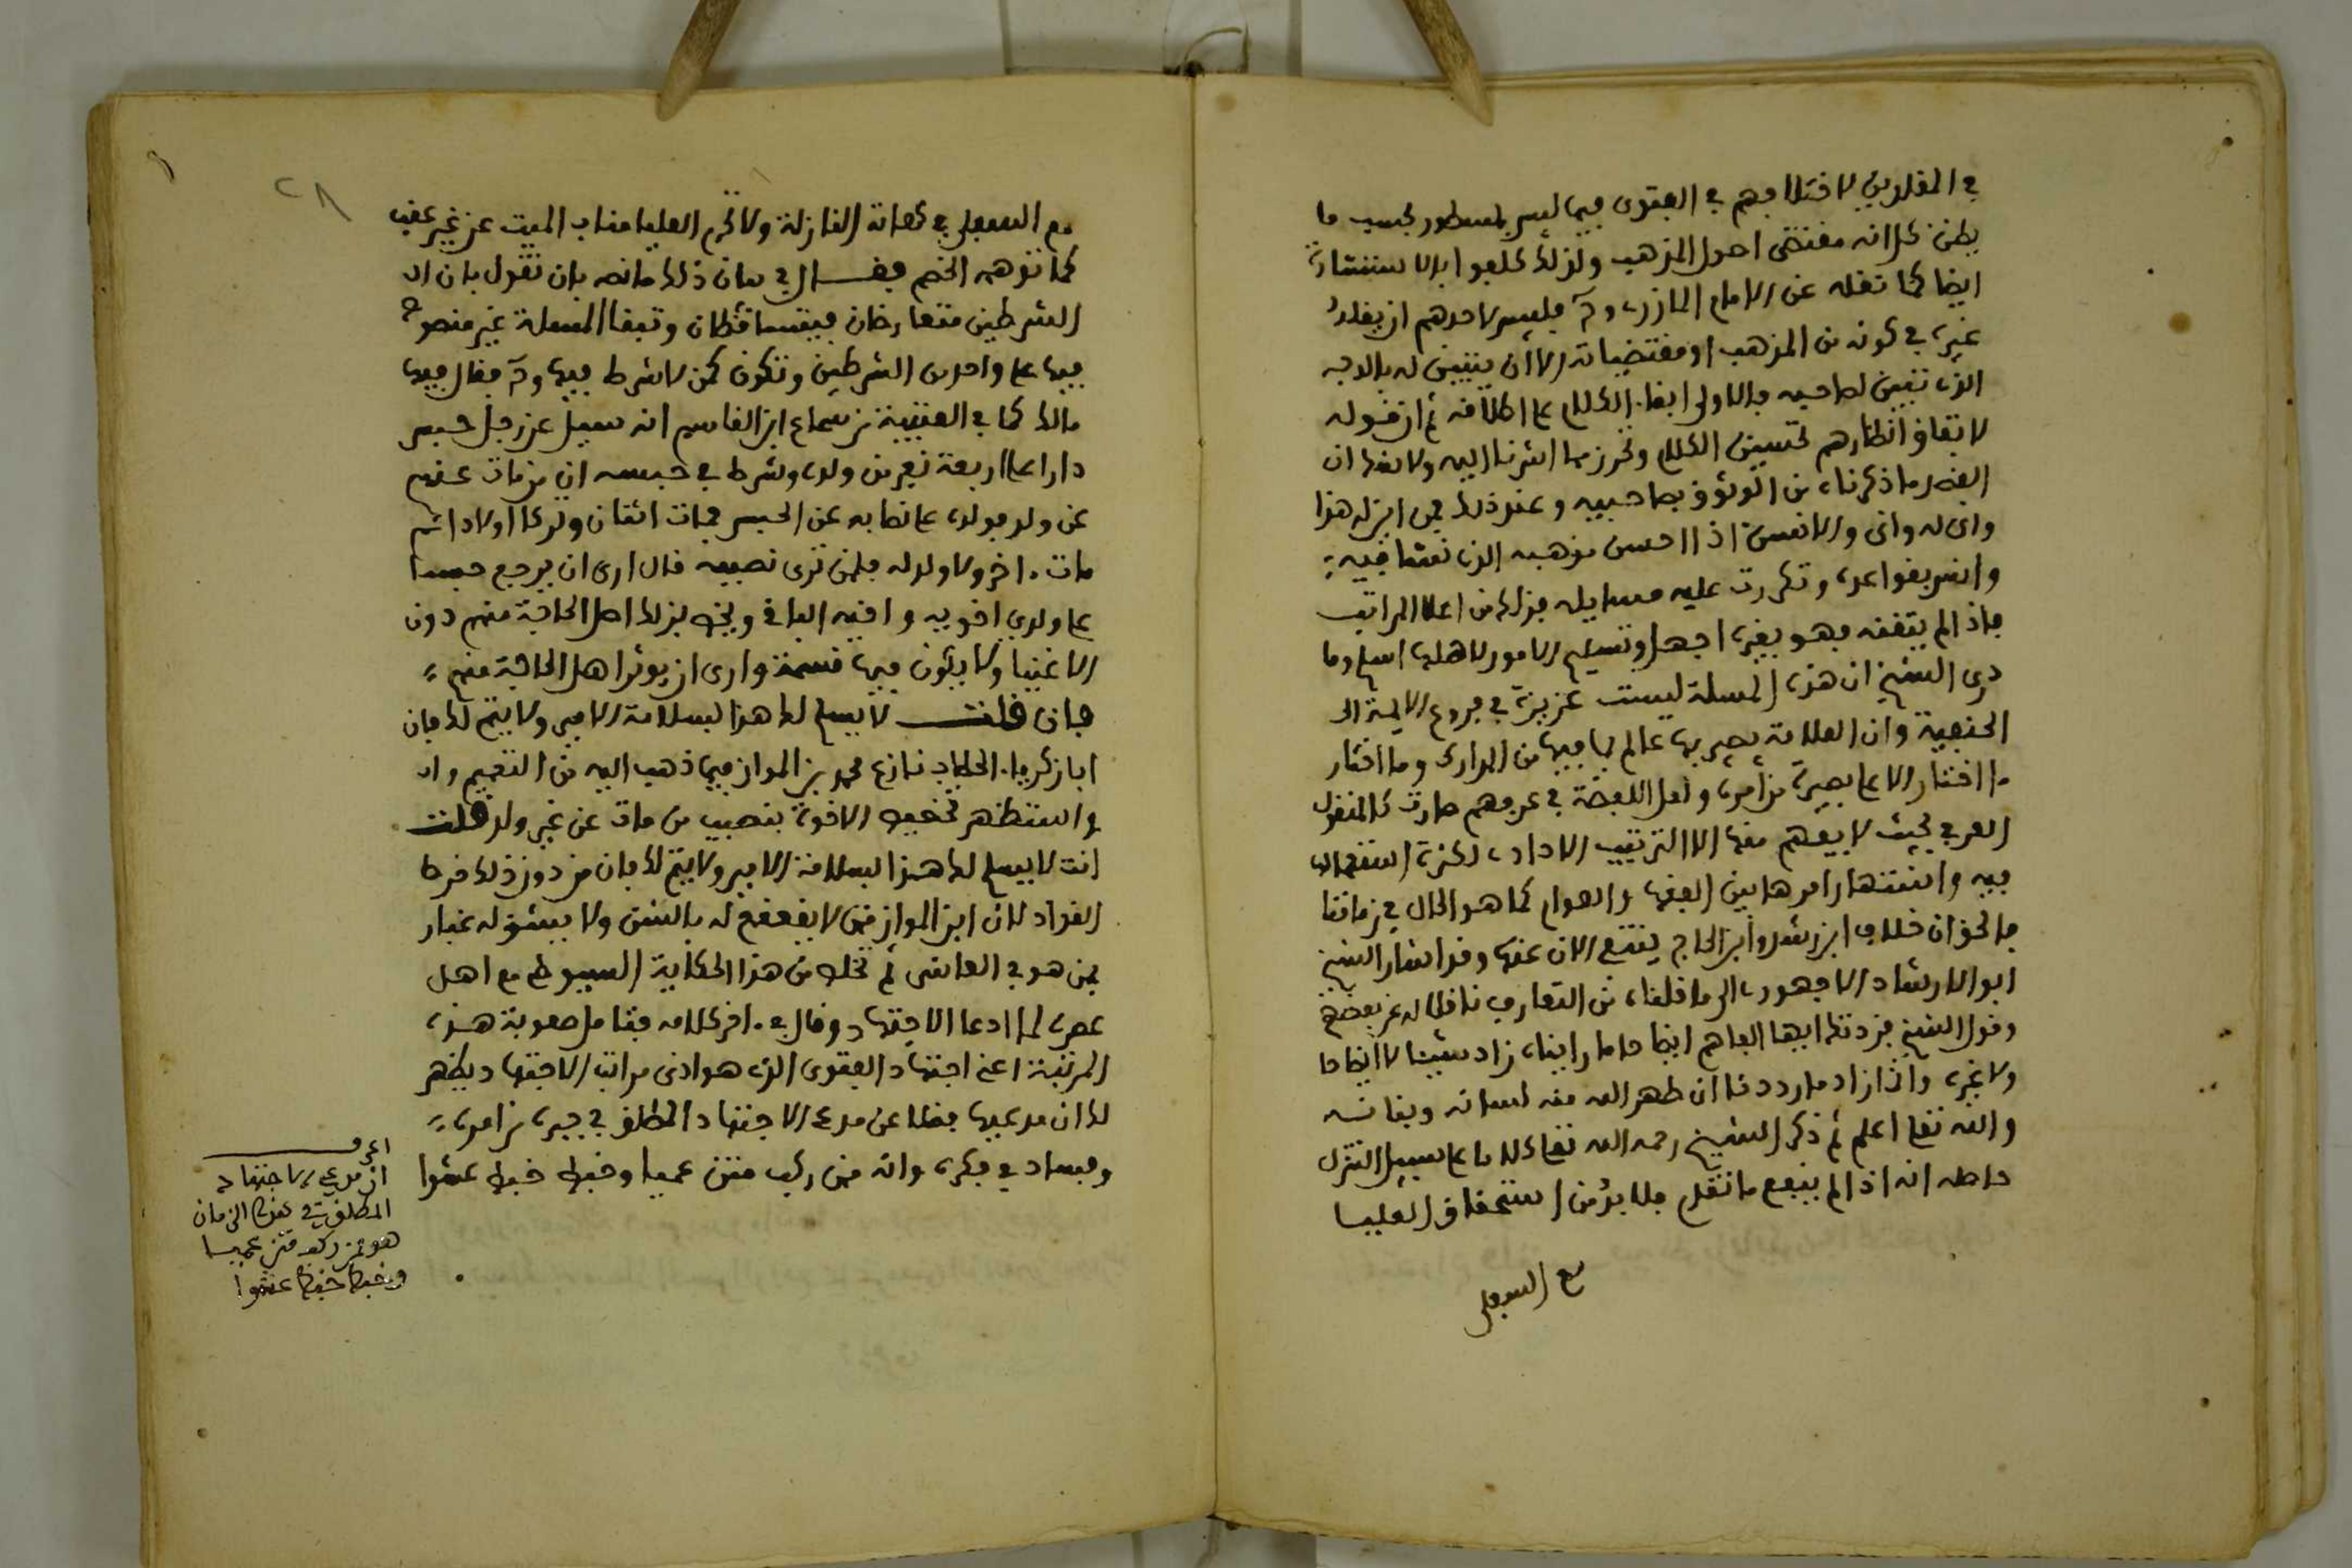 في المقلدين لاختلافهم في الفتوى فيما ليس بمسطور بحسب ما
يظن كل انه مقتضى اصول المذهب ولذلك كلفوا بالاستشارة
ايضا كما نقله عن الامام المازري وح فليس لاحدهم ان يقلد
غيره في كونه من المذهب او مقتضياته الا أن يتبين له بالوجه
الذي تبين لصاحبه فالاولى ابقا الكلام على اطلاقه ثم ان قوله
لاتفاق انظارهم تحسين الكلام وتحرز مما اشرنا اليه ولا
القصر ما ذكرناه من الوثوق بصاحبيه وعند ذلك فمن اين له هذا
واني له واني والانفس اذا احسن مذهبه الذي نشا فيه
وانس بقواعده وتكررت عليه مسايله فذلك من اعلا المراتب
فاذا لم يتقنه فهو بغيره اجهل وتسليم الامور لاهلها اسلم وما
درى الشيخ ان هذه المسلة ليست عزيزة في فروع الايمة الـ
الحنفية وان العلامة بصير بها عالم بما فيها من المدارك وما اختار
ما اختار الا على بصيرة من امره واهل اللفظة في عرفهم صارت كالمنقول
العرفي بحيث لا يفهم منها الا الترتيب الافرادي لكثرة استعمالها
فيه واشتهار امرها بين الفقها والعوام كما هو الحال في زماننا
فالحق ان خلاف ابن رشد وابن الحاج ينتفي الان عنها وقد اشار الشيخ
ابو الارشاد الاجهوري الى ما قلناه من التعارف ناقلا له عن بعضهم
وقول الشيخ فزدتك ايها الفاهم ايضاحا ما راينا زاد شيئا لا ايضاحا
ولا غيره وانما زاد ما رددنا ان طهر الله منه لسانه وبنانه
والله تعلى اعلم ثم ذكر الشيخ رحمه الله تعلى كلاما على سبيل التنزل
حاصله انه اذا لم ينفع ما تقدم فلا بد من استحقاق العليا
مع السفلى
٢٨
مع السفلى في هاته النازلة ولا تحرم العليا مناب الميت عن غير عقب
كما توهمه الخصم فقال في بيان ذلك ما نصه بان نقول بان الـ
الشرطين متعارضان فيتساقطان وتبقا المسلة غير منصوح
فيها على واحد من الشرطين وتكون كمن لا شرط فيها وح فقال فيها
مالك كما في العتبية من سماع ابن القاسم انه سيل عن رجل حبس
دارا على اربعة نفر من ولده وشرط في حبسه ان من مات منهم
عن ولد فولده على نصابه عن الحبس فمات اثنان وتركا اولادا ثم
مات اخر ولا ولد له فلمن ترى نصيبه قال ارى ان يرجع حبسا
على ولدي اخويه واخيه الباقي ويخص بذلك اهل الحاجة منهم دون
الاغنيا ولا يبلون فيها قسمة وارى ان يوثر اهل الحاجة منهم
فان قلت لا يسلم لك هذا بسلامة الامير ولا يتم لك فان
ابا زكريا الحطاب نازع محمد بن المواز فيما ذهب اليه من التعميم واد
واستظهر تخصيص الاخوة بنصيب من مات عن غير ولد قلت
انت لا يسلم لك هذا بسلامة الامير ولا يتم لك فان من دون ذلك خرط
القتاد لان ابن المواز ممن لا يقعقع له بالشن ولا يشق له غبار
فمن هو في العاشي ثم نحكي من هذا الحكاية السيوطي مع اهل
عصره لما ادعا الاجتهاد وقال في اخر كلامه فتامل صعوبة هذه
المرتبة اعني اجتهاد الفتوى الذي هو ادنى مراتب الاجتهاد يظهر
لك ان مدعيها فضلا عن مدعي الاجتهاد المطلق في حيرة من امره
وفساد في فكره وانه ممن ركب متن عميا وخبط خبط عشوا
اعرف
ان مدعي الاجتهاد
المطلق في هذا الزمان
هو ممن ركب متن عميا
وخبط خبط عشوا